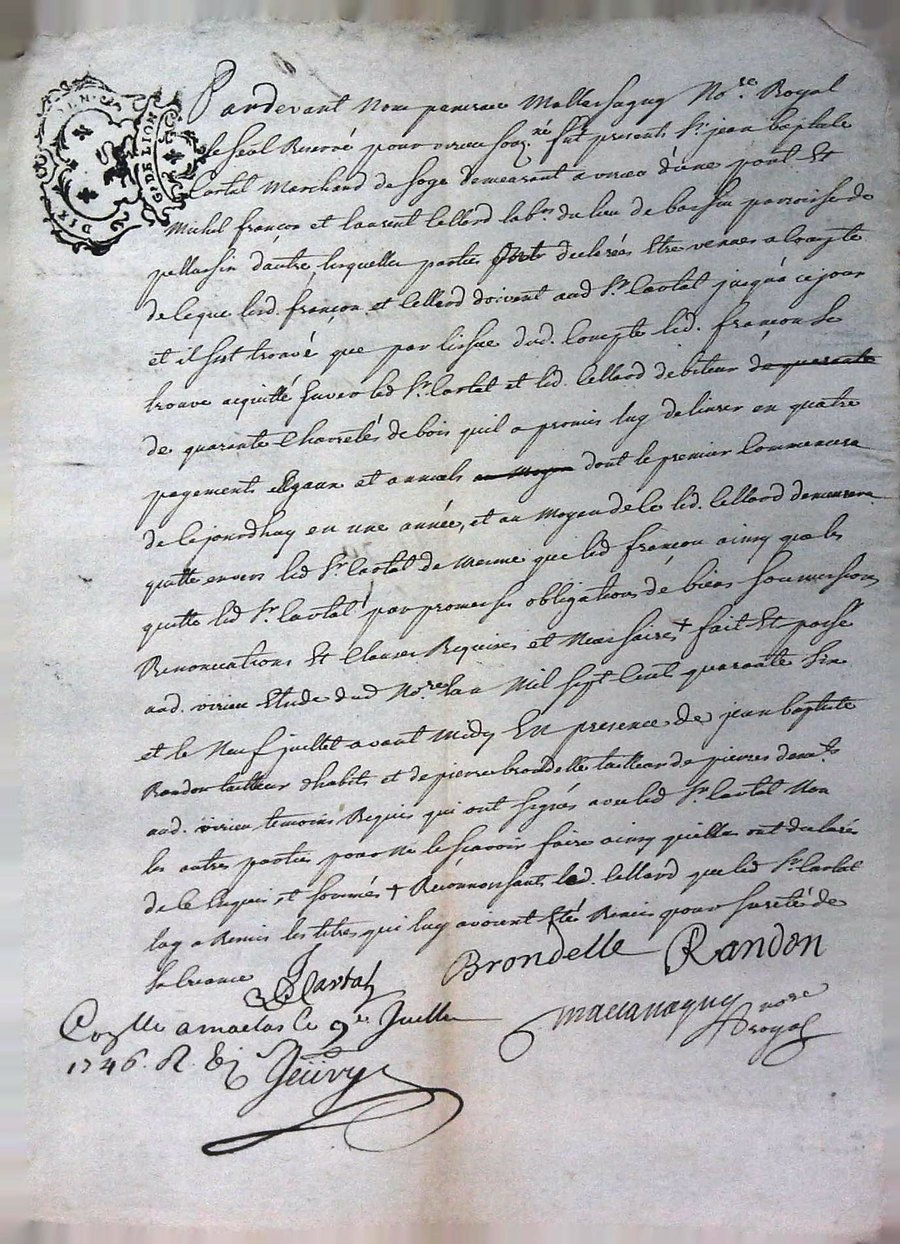 G. DE LION
DIX
Pardevant Nous pancrace Nore Royal
le Seel Reservé pour virieu soug.né fut present Sr jean baptiste
Cartal Marchand de soye demeurant a virieu d'une part Et
Michel françon et laurent Cellard labrs du lieu de baissin parroisse de
pellussin d'autre lesquelles parties declarées Etre venues a Compte
de ce que lesd. françon et Cellard doivent aud Sr Cartal jusqua ce jour
et il s'est trouvé que par lissue dud. Compte led. françon se
trouve acquitté envers led Sr Cartal et led. Cellard debiteur de quarante
de quarante Charretés de bois quil a promis luy delivrer en quatre
payements Egaux et annuels au Moyen dont le premier Commencera
de cejourdhuy en une année, et au Moyen de ce led. Cellard demeurera
quitte envers led Sr Cartal de mesme que led françon ainsy que les
quitte led Sr Cartal par promesses obligations de biens Soumissions
Renonciations Et Clauses Requises et Necessaires + fait Et passé
aud. virieu Etude dud Nore lan Mil Sept Cent quarante Six
et le Neuf juillet avant Midy En presence de jean baptiste
Randon tailleur d'habits et de pierre brondelle tailleur de pierres demts
aud. virieu temoins Requis qui ont signés avec led Sr Cartal Non
les autres parties pour Ne le scavoir faire ainsy quelles ont declarés
de ce Enquis et sommés + Reconnoissant led. Cellard que led Sr Cartal
luy a Remis les titres qui luy avoient Etés Remis pour sureté de
sa creance
JB Cartal Brondelle Randon
nore
royal
Con.lle a maclas le 9e Juillet
1746. R.